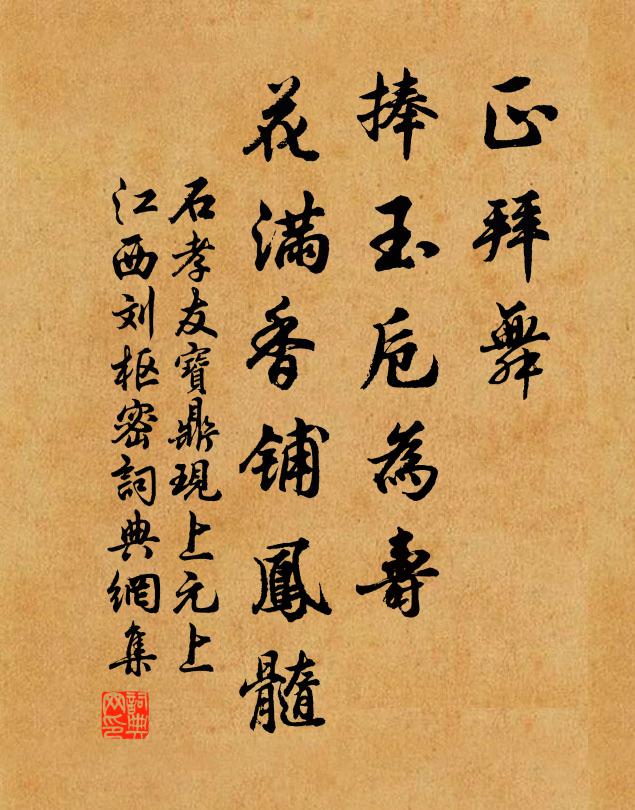 正拜舞
捧玉卮為壽
花滿香鋪鳳髓
石孝友寶鼎現上元上
江西刘枢密詞典網集
詞典
网印